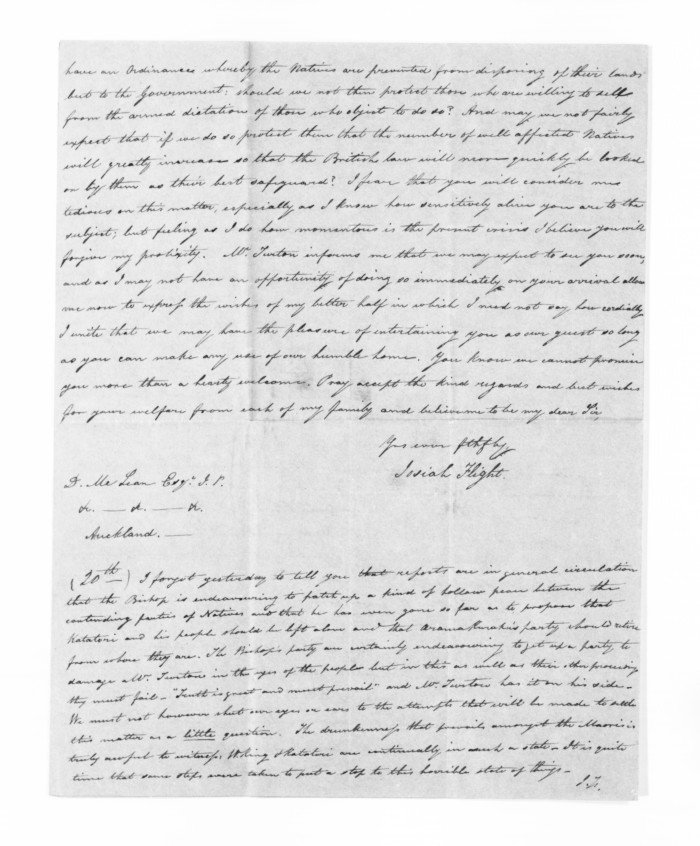 have an Ordinances whereby the Natives are prevented from disposing of their lands
but to the Government: should we not then protect those who are willing to sell
from the armed dictation of those who object to do so? And may we not fairly
expect that if we do so protect them that the number of well affected Natives
will greatly increase so that the British law will more quickly be looked
on by them as their best safeguard? I fear that you will consider me
tedious on this matter, especially as I know how sensitively alive you are to the
subject; but feeling as I do how momentous is the present crisis I believe you will
forgive my prolixity. Mr. Turton informs me that we may expect to see you soon,
and as I may not have an opportunity of doing so immediately on your arrival allow
me now to express the wishes of my better half in which I need not say how cordially
I unite that we may have the pleasure of entertaining you as our guest so long
as you can make any use of our humble home. You know we cannot promise
you more than a hearty welcome. Pray accept the kind regards and best wishes
for your welfare from each of my family and believe me to be my dear Sir,
Yrs ever fthfly
Josiah Flight.
D. McLean Esqr. J.P.
&. — &. — &.
Auckland. —
(20th) I forgot yesterday to tell you that reports are in general circulation
that the Bishop is endeavouring to patch up a kind of hollow peace between the
contending parties of Natives and that he has even gone so far as to propose that
Katatori and his people should be left alone and that Arama Karaka's party should retire
from where they are. The Bishop's party are certainly endeavouring to get up a party to
damage Mr. Turton in the eyes of the people but in this as well as their other proceedings
they must fail - "Truth is great and must prevail" and Mr. Turton has it on his side -
We must not however shut our eyes or ears to the attempts that will be made to settle
this matter as a little question. The drunkenness that prevails amongst the Maoris is
truly awful to witness Katatori are continually in such a state - It is quite
time that some steps were taken to put a stop to this horrible state of things -
J.F.